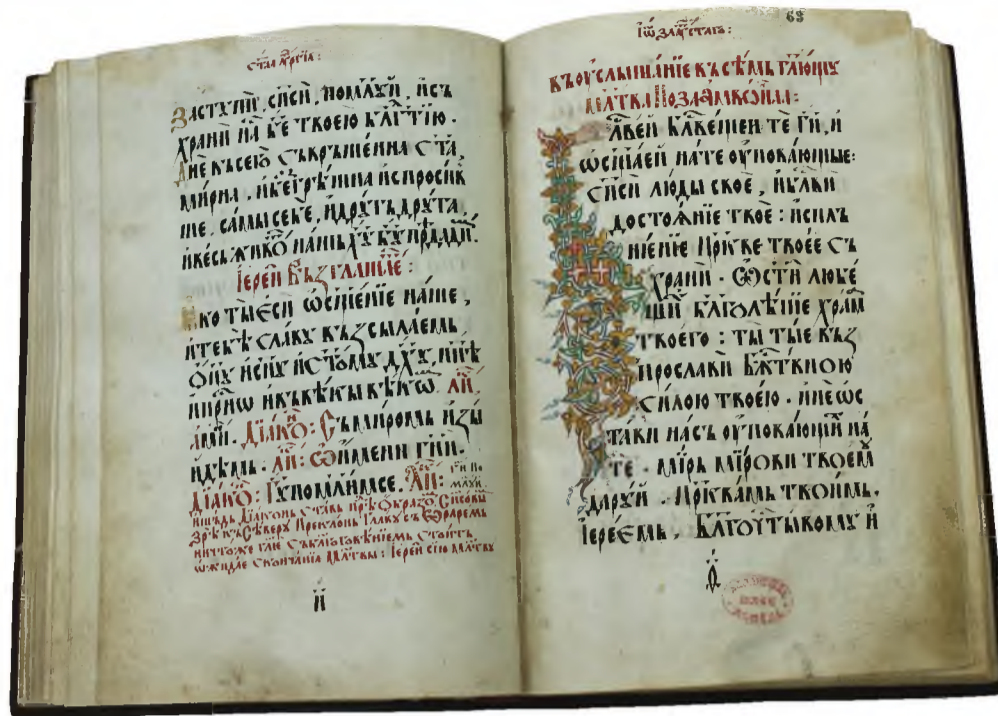 ст҃аа лѵрг҃їа:
Заступи, сп҃си, помл҃уй, и съ
храни ны бе҃ твоею бл҃гтїю.
Дне въсего съврьшенна ст҃а
мирна, и безгрѣшна испросивь
ше, самы себе, и другь друга
и весь животь нашь х҃у б҃у прѣдадим.
Їерей Възглашае:
Яко ты еси ѡсщ҃енїе наше,
и тебѣ славу възсылаемь
ѻц҃у и сн҃у и ст҃ому дх҃у, нн҃ѣ
и прⷭ҇нѡ и къ вѣкы вѣкѡ. Ли:
Амин. Дїако: Съ миромь изы
идѣмь. Ли: Ѡ имени гн҃и.
Дїако: Гу҃ помлимсе. Ли: ги҃ по
млуи.
Зрѣ къ сѣверу преклонь главу съ ѡрарем
ничтоже гл҃е съ бл҃гоговѣнїемь стоить
ѡжидае скончанїа мл҃твы: Їерей сїю мл҃тву
и҃
Їѡ злаⷮстаго:
69
въ услышанїе въсѣмь гл҃ющу
мл҃тва поза амвѡнна:
Бл҃вей бл҃вещеи те ги҃, и
ѡсщ҃аей на те уповающые:
сп҃си люды свое, и бл҃ви
достоѧнїе твое: исплъ
нѥнїе цр҃кве твоее съ
храни. Ѡст҃и любе
щыи бл҃голѣпїе храм
твоего: ты тые въз
прослави бж҃твною
силою твоею. и не ѡс
тави нась уповающїи на
те. мирь мїрови твоем
даруй. цр҃квамь твоимь,
їереѥмь, бл҃гочтывому и
а҃